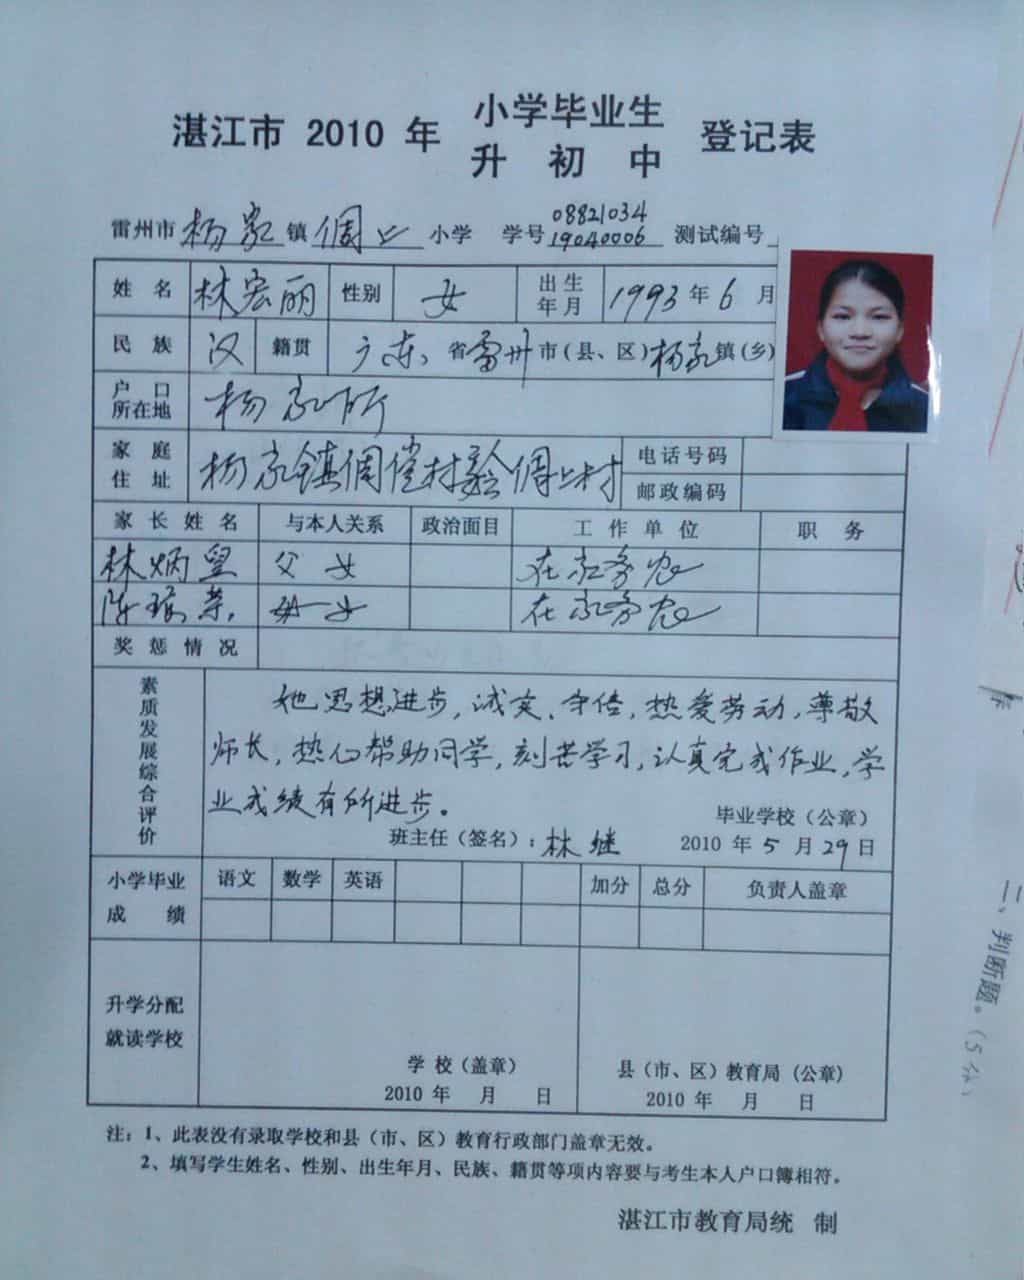 湛江市 2010 年 小学毕业生 登记表
升 初 中
08821034
雷州市 杨家 镇 倜上 小学 学号 19040006 测试编号
姓 名 林宏丽 性别 女 出生年月 1993 年 6 月
民 族 汉 籍贯 广东 省 雷州 市(县、区) 杨家 镇(乡)
户 口 所在地 杨家所
家 庭 住 址 杨家镇倜 村 倜上村 电话号码
邮政编码
家 长 姓 名 与本人关系 政治面目 工 作 单 位 职 务
林炳 父女 在家务农
陈 母女 在家务农
奖 惩 情 况
素质发展综合评价
她思想进步,诚实、守信,热爱劳动,尊敬
师长,热心帮助同学,刻苦学习,认真完成作业,学
业成绩有所进步。
毕业学校(公章)
班主任(签名):林继 2010 年 5 月 29 日
小学毕业 成 绩 语文 数学 英语 加分 总分 负责人盖章
升学分配
就读学校
学 校(盖章) 县(市、区)教育局(公章)
2010 年 月 日 2010 年 月 日
注:1、此表没有录取学校和县(市、区)教育行政部门盖章无效。
2、填写学生姓名、性别、出生年月、民族、籍贯等项内容要与考生本人户口簿相符。
湛江市教育局统 制
二、判断题。(5分、